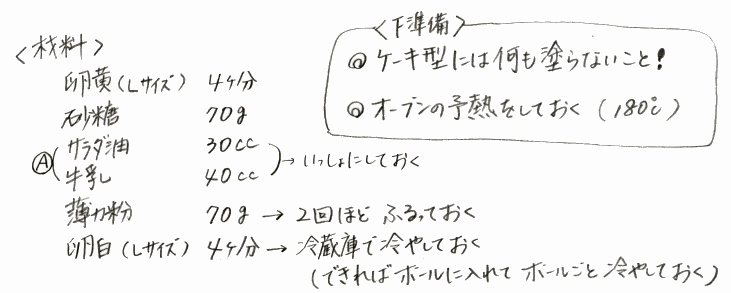 <材料>
卵黄(Lサイズ) 4ヶ分
砂糖 70g
Ⓐ サラダ油 30cc
牛乳 40cc → いっしょにしておく
薄力粉 70g → 2回ほど ふるっておく
卵白(Lサイズ) 4ヶ分 → 冷蔵庫で冷やしておく
(できればボールに入れて ボールごと 冷やしておく)
<下準備>
◎ ケーキ型には何も塗らないこと!
◎ オーブンの予熱をしておく (180℃)